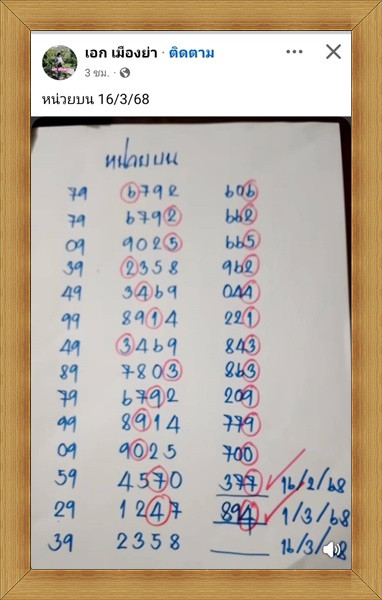 เอก เมืองย่า · ติดตาม
3 ชม. ·
หน่วยบน 16/3/68
หน่วยบน
79 6792 606
79 6792 662
09 9025 665
39 2358 962
49 3469 044
99 8914 221
49 3469 843
89 7803 863
79 6792 209
99 8914 779
09 9025 700
59 4570 377 16/2/68
29 1247 894 1/3/68
39 2358 16/3/68